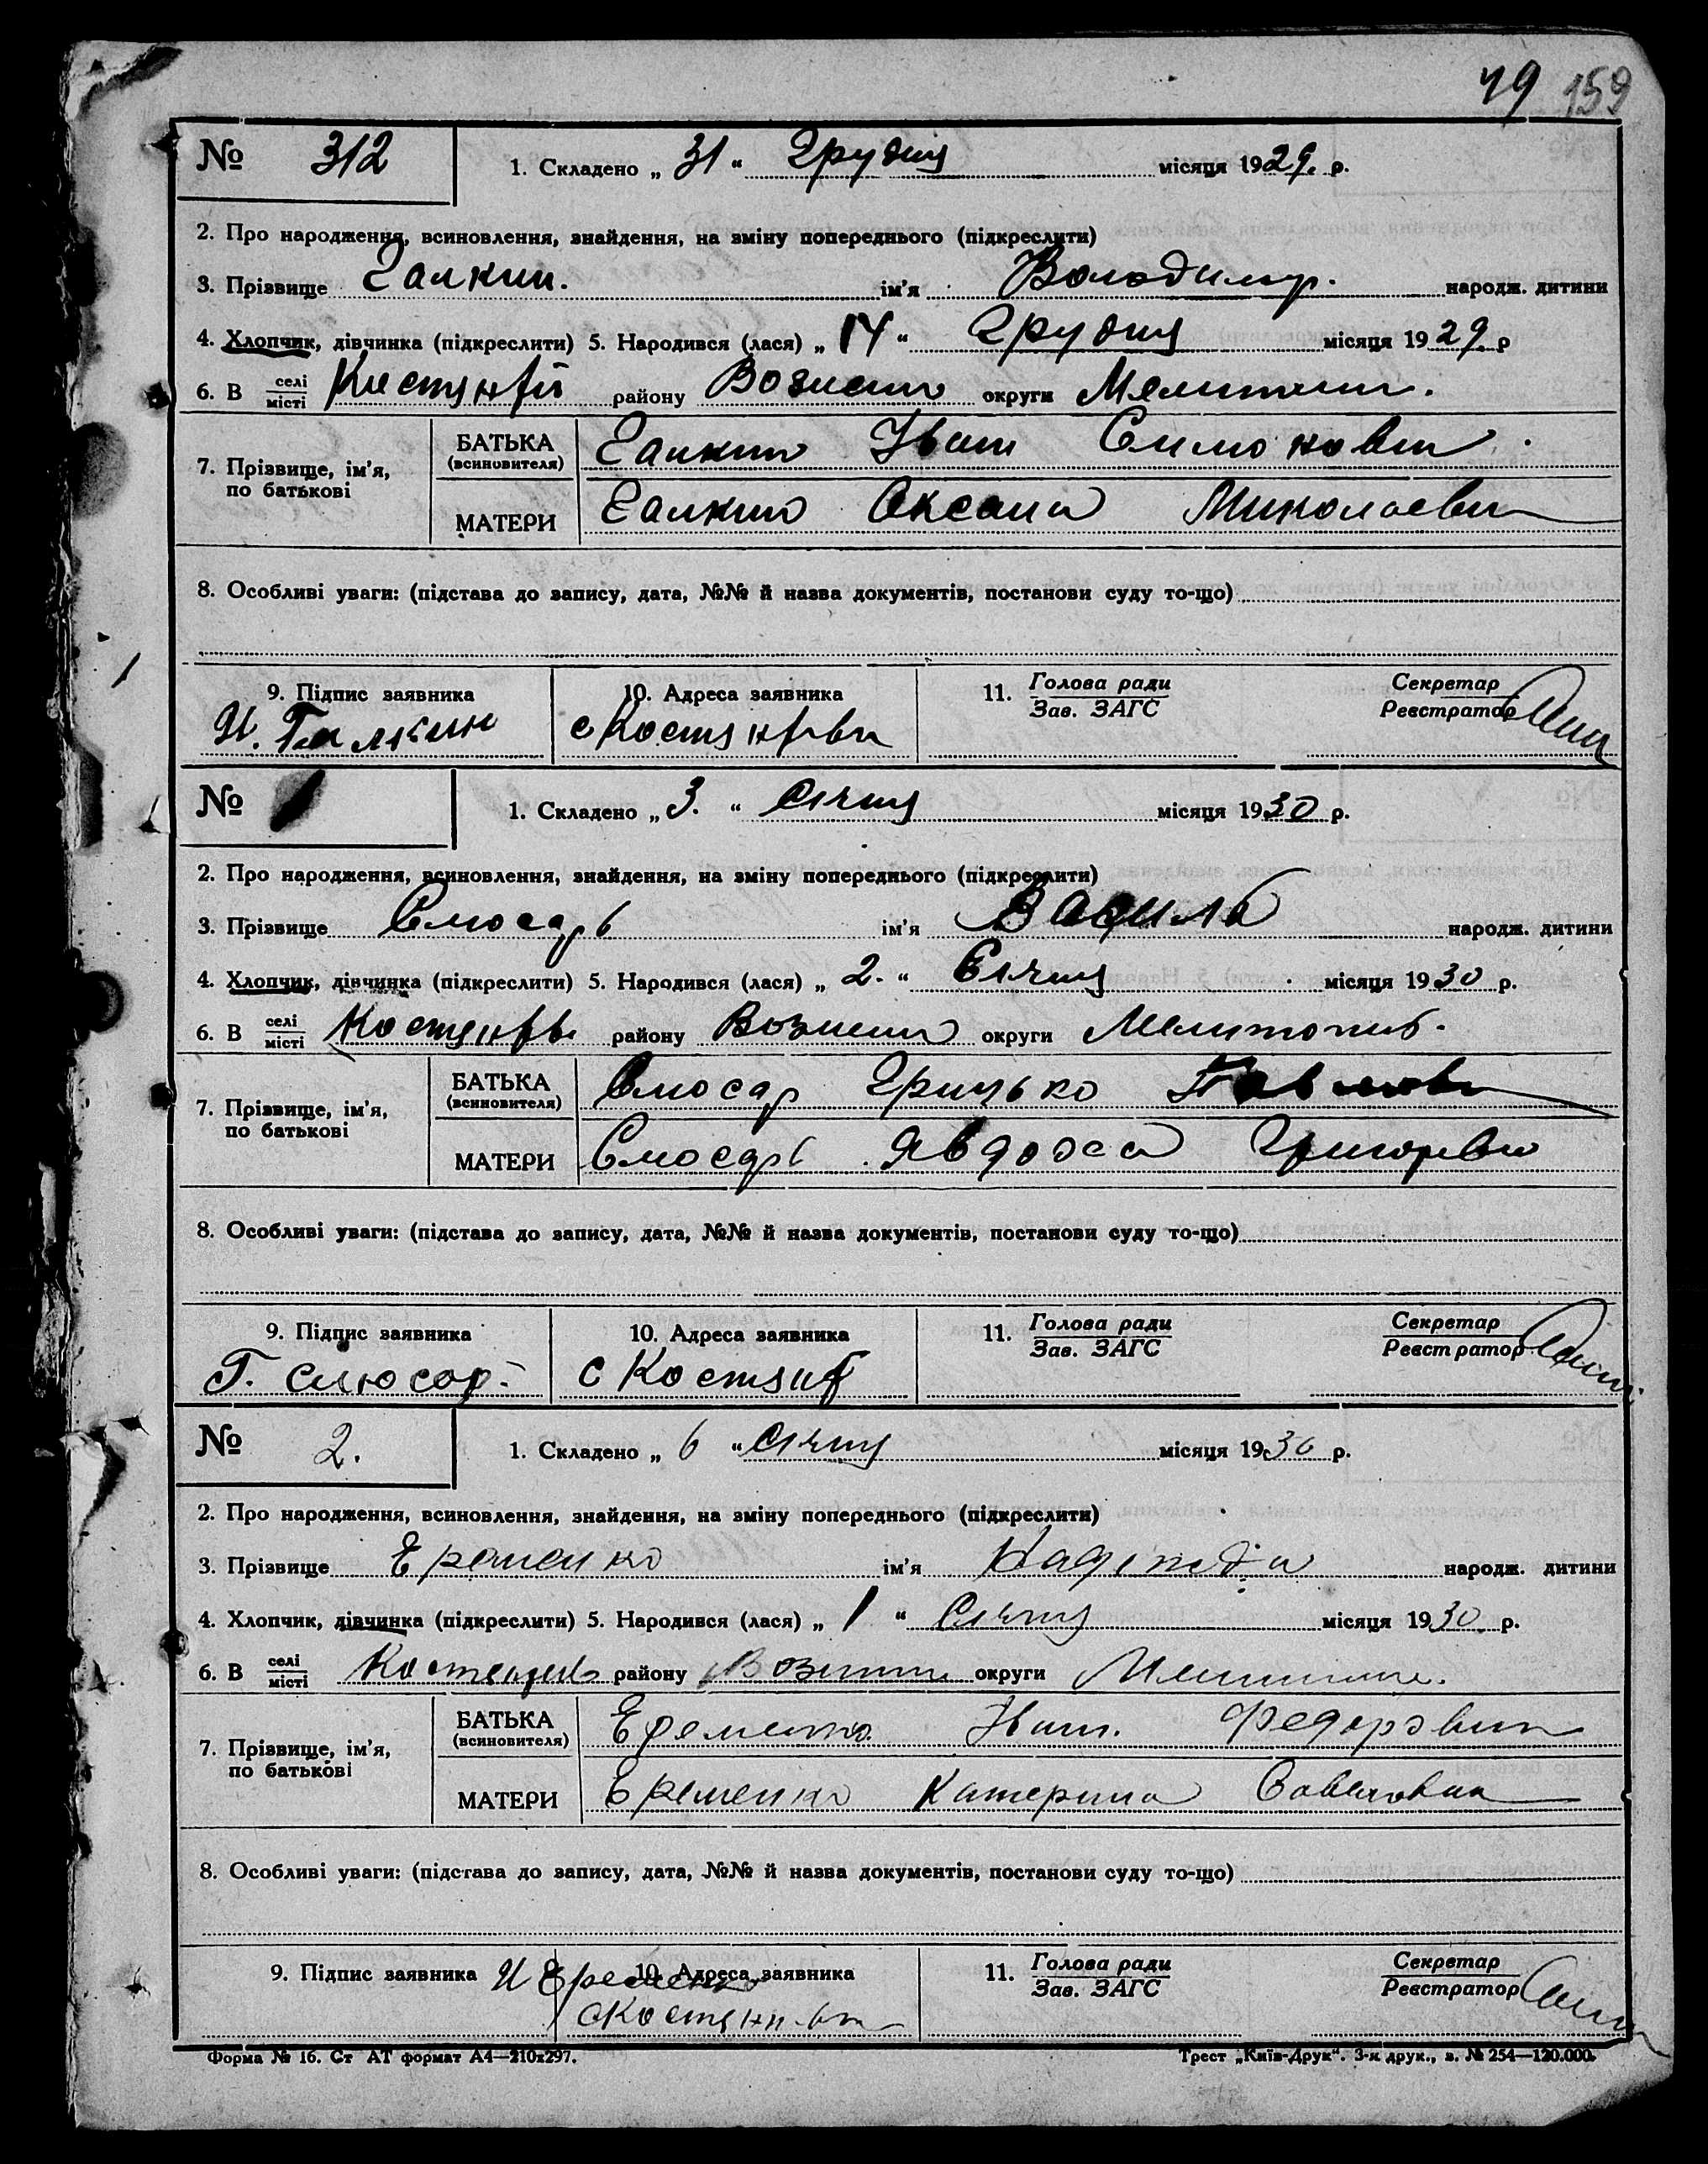 49 159
№ 312 1. Складено „ 31 " Грудня місяця 1929. р.
2. Про народження, всиновлення, знайдення, на зміну попереднього (підкреслити)
3. Прізвище Галкин. ім'я Володимир. народж. дитини
4. Хлопчик, дівчинка (підкреслити) 5. Народився (лася) „ 14 " Грудня місяця 1929. р
6. В селі місті району Вознесен округи Мелитоп.
7. Прізвище, ім'я, по батькові
БАТЬКА (всиновителя) Галкин Іван Симонович
МАТЕРИ Галкин Оксана Миколаевн
8. Особливі уваги: (підстава до запису, дата, №№ й назва документів, постанови суду то-що)
9. Підпис заявника 10. Адреса заявника 11. Голова ради Зав. ЗАГС Секретар Реєстратор
И. Галкин с
№ 1 1. Складено „ 3. " Січня місяця 1930 р.
2. Про народження, всиновлення, знайдення, на зміну попереднього (підкреслити)
3. Прізвище Слюсарь ім'я Василь народж. дитини
4. Хлопчик, дівчинка (підкреслити) 5. Народився (лася) „ 2. " Січня місяця 1930 р.
6. В селі місті району Вознесен округи Мелитопол.
7. Прізвище, ім'я, по батькові
БАТЬКА (всиновителя) Слюсар Грицько Павлови
МАТЕРИ Слюсарь Явдоха Григоревн
8. Особливі уваги: (підстава до запису, дата, №№ й назва документів, постанови суду то-що)
9. Підпис заявника 10. Адреса заявника 11. Голова ради Зав. ЗАГС Секретар Реєстратор
Г. Слюсар. с
№ 2. 1. Складено „ 6 " Січня місяця 1930 р.
2. Про народження, всиновлення, знайдення, на зміну попереднього (підкреслити)
3. Прізвище Еременко ім'я Надежда народж. дитини
4. Хлопчик, дівчинка (підкреслити) 5. Народився (лася) „ 1 " Січня місяця 1930 р.
6. В селі місті району округи
7. Прізвище, ім'я, по батькові
БАТЬКА (всиновителя) Еременко Іван. Федорович
МАТЕРИ Еременко Катерина Савеловна
8. Особливі уваги: (підстава до запису, дата, №№ й назва документів, постанови суду то-що)
9. Підпис заявника И Еременко 10. Адреса заявника 11. Голова ради Зав. ЗАГС Секретар Реєстратор
Форма № 16. Ст АТ формат А4—210х297. Трест „Київ-Друк". 3-я друк., з. № 254—120.000.